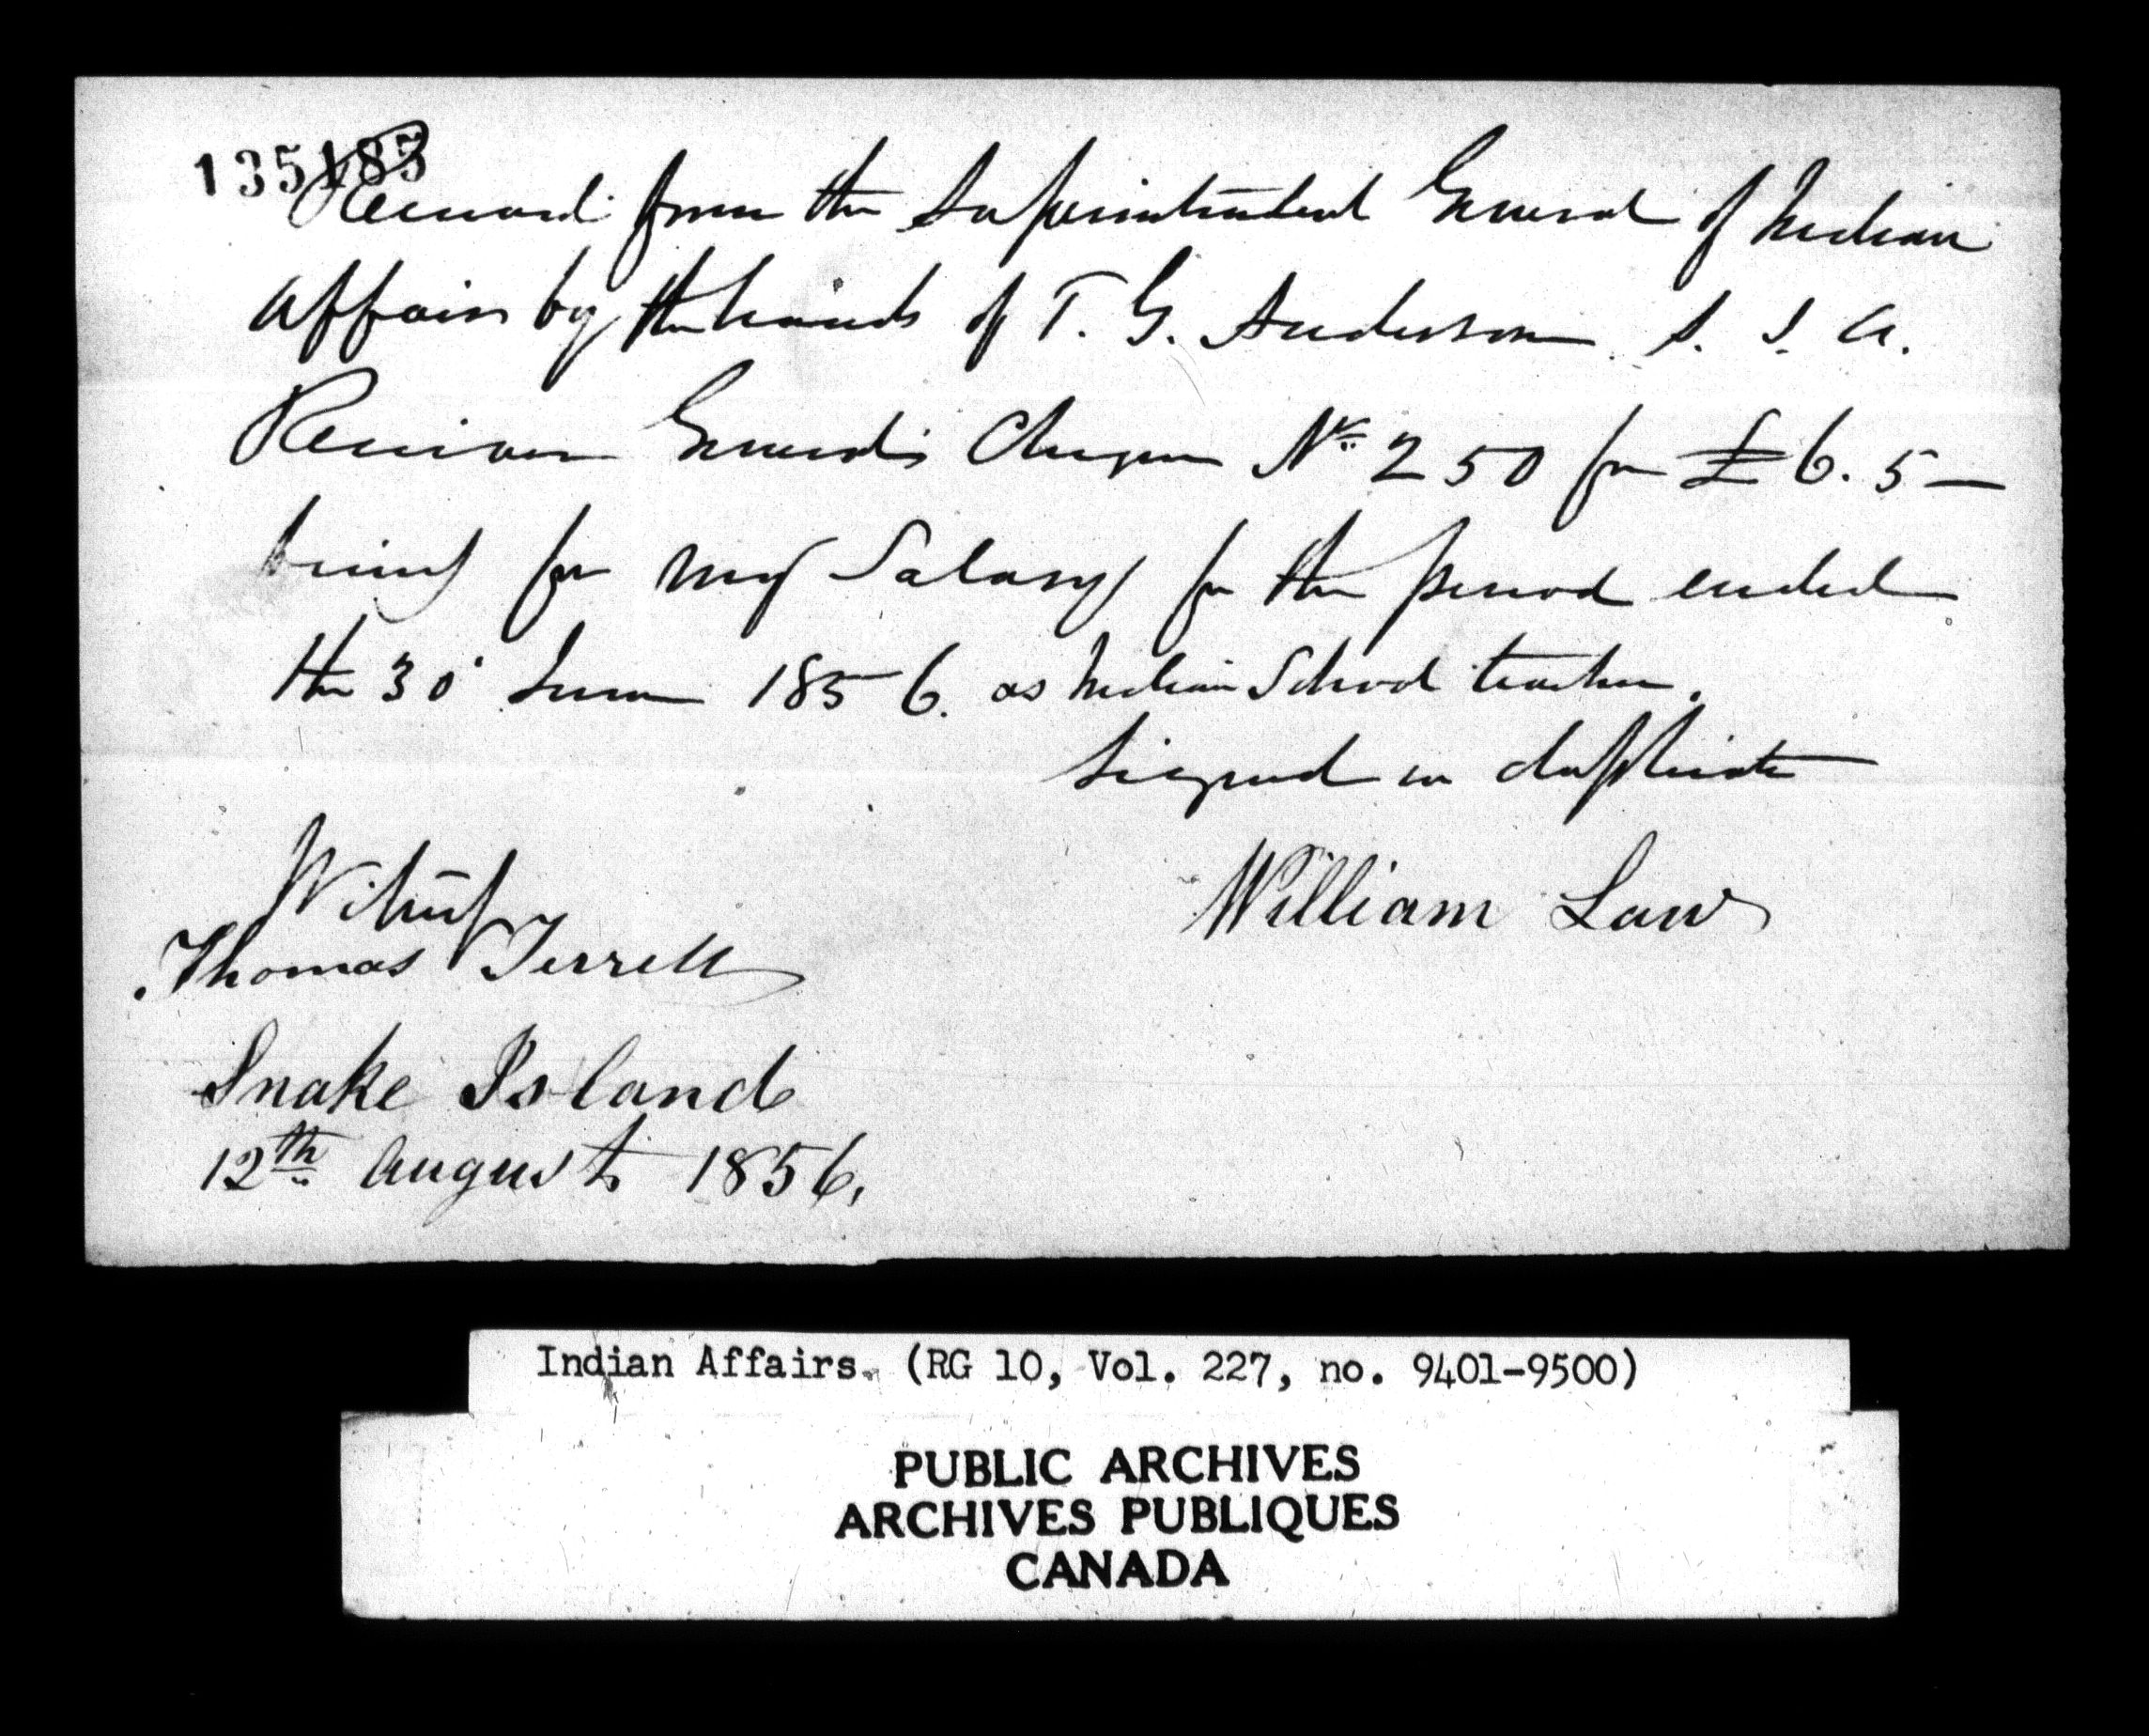 135185
Received from the Superintendent General of Indian
Affairs by the hands of T. G. Anderson S. I. A.
Receiver General's Cheque No 250 for £6.5—
being for my Salary for the period ended
the 30 June 1856. as Indian School teacher.
Signed in duplicate
Witness
William Law
Thomas Terrell
Snake Island
12th August 1856.
Indian Affairs. (RG 10, Vol. 227, no. 9401-9500)
PUBLIC ARCHIVES
ARCHIVES PUBLIQUES
CANADA